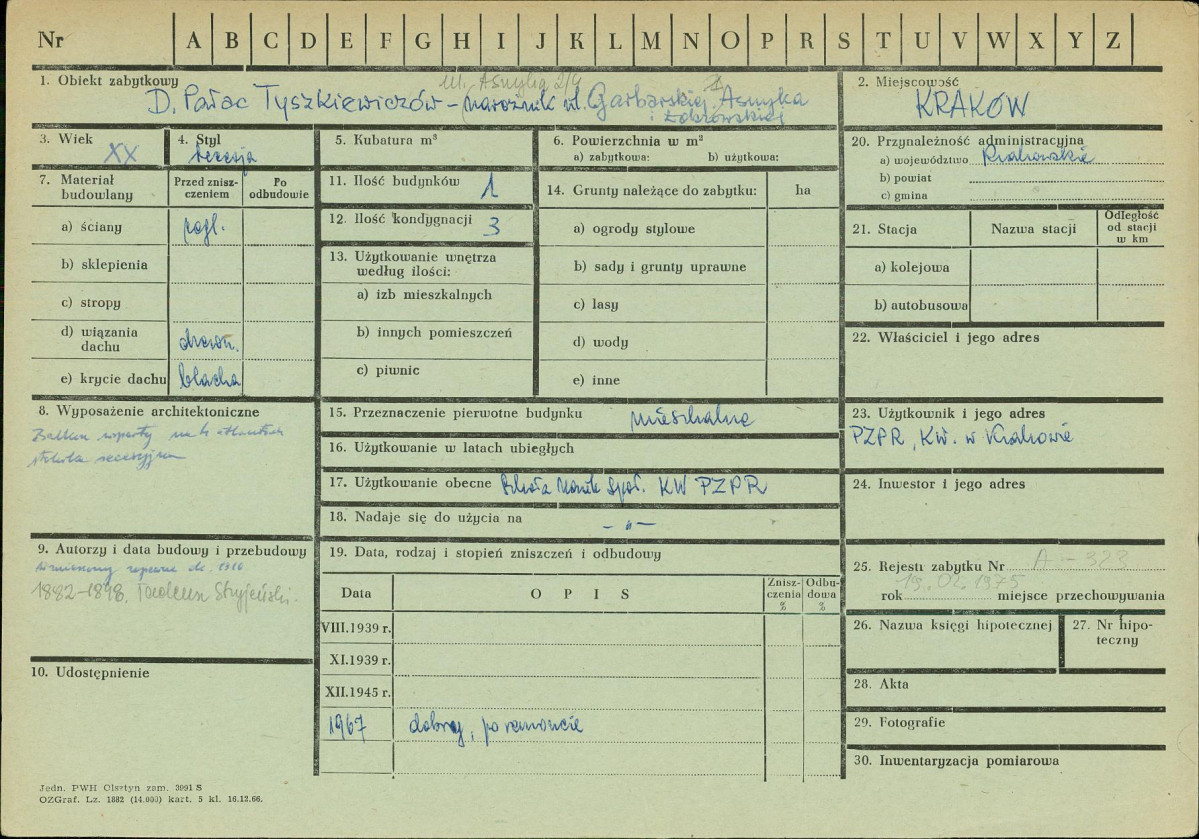 Nr A B C D E F G H I J K L M N O P R S T U V W X Y Z
1. Obiekt zabytkowy
ul. Asnyka 2/4
D. Pałac Tyszkiewiczów – narożnik ul. Garbarskiej, Asnyka
i Łobzowskiej
2. Miejscowość
KRAKÓW
3. Wiek
XX
4. Styl
secesja
5. Kubatura m³
6. Powierzchnia w m²
a) zabytkowa: b) użytkowa:
20. Przynależność administracyjna
a) województwo Krakowskie
b) powiat
c) gmina
7. Materiał budowlany
Przed zniszczeniem
Po odbudowie
a) ściany
b) sklepienia
c) stropy
d) wiązania dachu drewn.
e) krycie dachu blacha
11. Ilość budynków 1
12. Ilość kondygnacji 3
13. Użytkowanie wnętrza
według ilości:
a) izb mieszkalnych
b) innych pomieszczeń
c) piwnic
14. Grunty należące do zabytku: ha
a) ogrody stylowe
b) sady i grunty uprawne
c) lasy
d) wody
e) inne
21. Stacja Nazwa stacji
Odległość
od stacji
w km
a) kolejowa
b) autobusowa
22. Właściciel i jego adres
8. Wyposażenie architektoniczne
Balkon wsparty na 4 atlantach
stolarka secesyjna
15. Przeznaczenie pierwotne budynku mieszkalne
16. Użytkowanie w latach ubiegłych
17. Użytkowanie obecne Szkoła Nauk Społ. KW PZPR
18. Nadaje się do użycia na – „ –
23. Użytkownik i jego adres
PZPR, KW. w Krakowie
24. Inwestor i jego adres
9. Autorzy i data budowy i przebudowy
1882–1898. Tadeusz Stryjeński.
10. Udostępnienie
19. Data, rodzaj i stopień zniszczeń i odbudowy
Data
O P I S
Zniszczenia %
Odbudowa %
VIII.1939 r.
XI.1939 r.
XII.1945 r.
1967 dobry, po remoncie
25. Rejestr zabytku Nr A-323
rok 19.02.1975 miejsce przechowywania
26. Nazwa księgi hipotecznej
27. Nr hipoteczny
28. Akta
29. Fotografie
30. Inwentaryzacja pomiarowa
Jedn. PWH Olsztyn zam. 3991 S
OZGraf. Lz. 1882 (14.000) kart. 5 kl. 16.12.66.